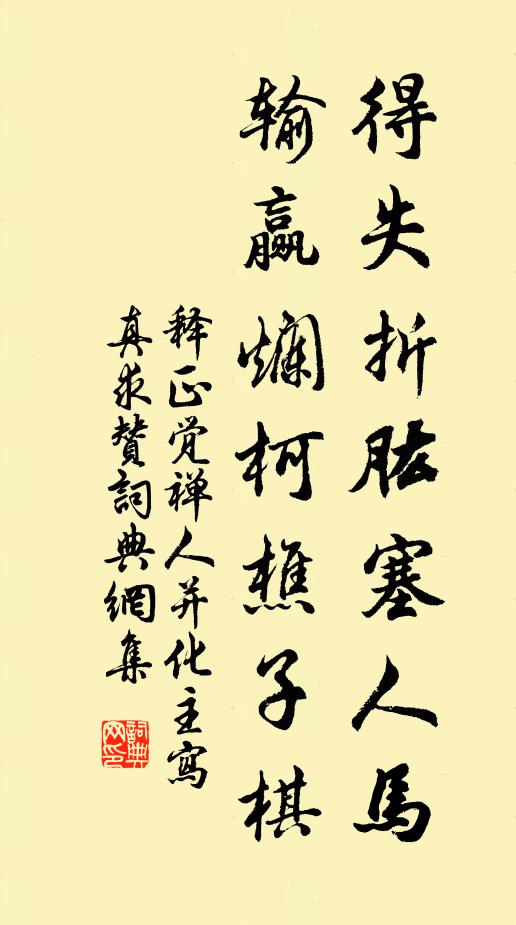 得失折肱塞人馬
输贏爛柯樵子棋
释正觉禅人并化主寫
真求賛詞典網集
詞典網印